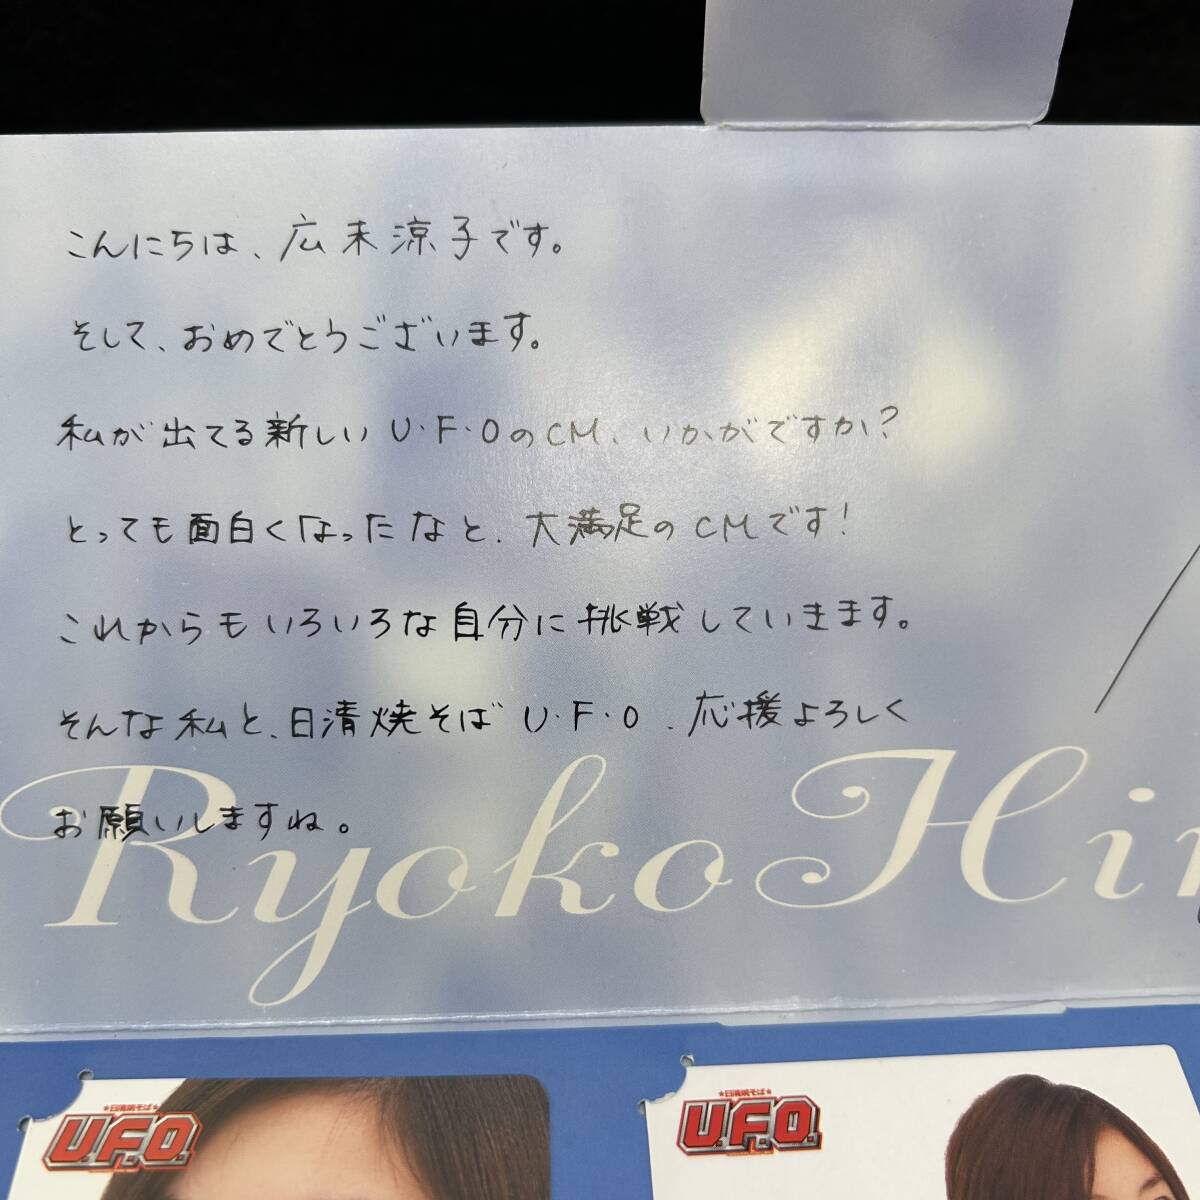 こんにちは、広末涼子です。
そして、おめでとうございます。
私が出てる新しいU・F・OのCM、いかがですか?
とっても面白くなったなと、大満足のCMです!
これからもいろいろな自分に挑戦していきます。
そんな私と、日清焼そばU・F・O、応援よろしく
お願いしますね。
Ryoko Hir
日清焼そば
U.F.O.
日清焼そば
U.F.O.